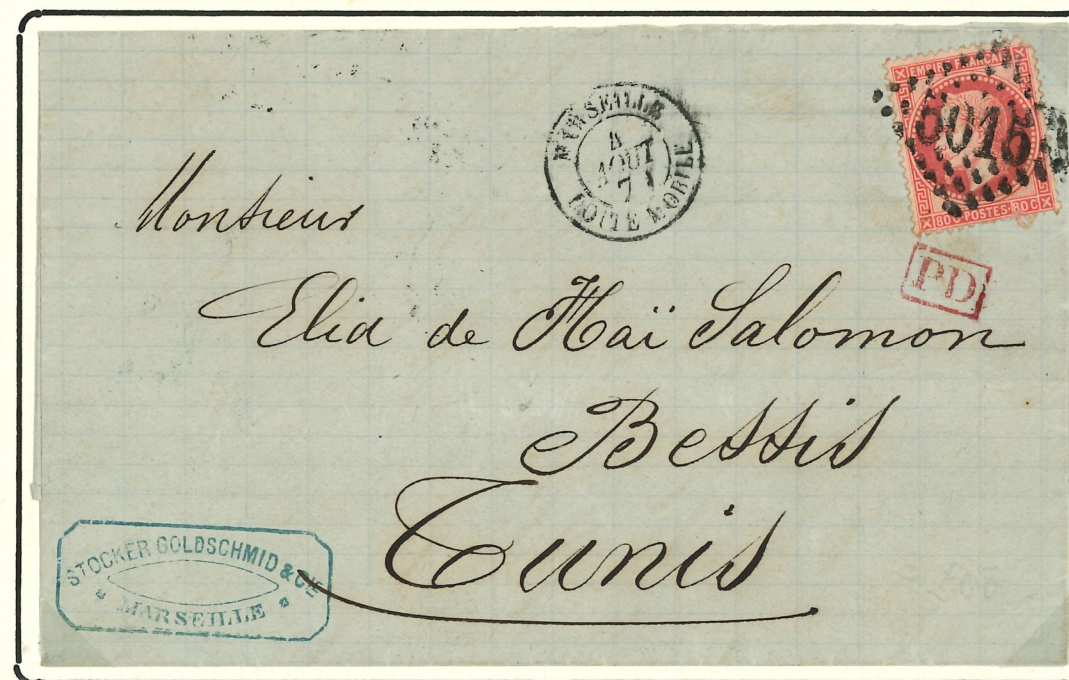 EMPIRE FRANÇAIS
80 C POSTES 80 C
MARSEILLE
4
AOUT
71
BOITE MOBILE
PD
Monsieur
Elia de Haï Salomon
Bessis
Tunis
STOCKER GOLDSCHMID & CIE
MARSEILLE